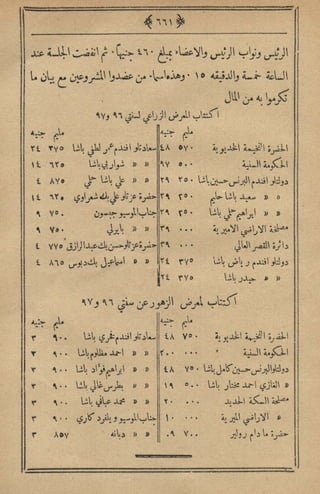 ﴿ ٦٦١ ﴾
الرئيس ونواب الرئيس والاعضاء بمبلغ ٤٦٠ جنيهاً ثم انفضت الجلسة عند
الساعة خمسة والدقيقه ١٥ وهذه اسماء من عضدوا المشروعين مع بيان ما
تكرموا به من المال
اكتتاب المعرض الزراعي لسنتي ٩٦ و ٩٧
مليم جنيه
الحضرة الفخيمة الخديوية ٥٧٠ ٤٨
الحكومة السنية ٥٠٠ ٩٧
دولتلو افندم البرنس حسين باشا ٢٥٠ ٢٩
« « سعيد باشا حليم ٢٥٠ ٢٩
« « ابراهيم حلمي باشا ٢٥٠ ٢٩
مصلحة الاراضي الاميرية ٠٠٠ ٣٩
دائرة القصر العالي ٠٠٠ ٣٩
دولتلو افندم رياض باشا ٣٧٥ ٢٤
« « حيدر باشا ٣٧٥ ٢٤
مليم جنيه
سعادتلو افندم عمر لطفي باشا ٣٧٥ ٢٤
« « شواربي باشا ٦٢٥ ١٤
« « علي باشا حلمي ٨٧٥ ٤
حضرة عزتلو علي بك شعراوي ٦٢٥ ١٤
جناب الموسيو جبسون ٧٥٠ ٩
« « بايرلي ٧٥٠ ٩
حضرة عزتلو حسن بك عبد الرازق ٧٧٥ ٤
« « اسماعيل بك دبوس ٨٦٥ ٤
اكتتاب لمعرض الزهور عن سنتي ٩٦ و ٩٧
مليم جنيه
الحضرة الفخيمة الخديوية ٧٥٠ ٤٨
الحكومة السنية ٠٠٠ ٢٠٠
دولتلو البرنس حسين كامل باشا ٧٥٠ ٤٨
« الغازي احمد مختار باشا ٥٠٠ ١٩
مصلحة السكة الحديد ٠٠٠ ٢٠
« الاراضي الميرية ٠٠٠ ١٠
حضرة مادام رولير ٧٠٠ ٠٩
مليم جنيه
سعادتلو افندم فخري باشا ٩٠٠ ٣
« « احمد مظلوم باشا ٩٠٠ ٢
« « ابراهيم فؤاد باشا ٩٠٠ ٣
« « بطرس غالي باشا ٩٠٠ ٣
« « محمد عباني باشا ٩٠٠ ٣
جناب الموسيو ويلفرد كاري ٩٠٠ ٣
« « دبانه ٨٥٧ ٣